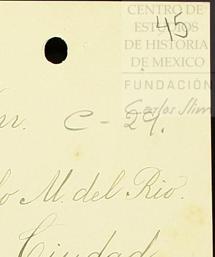 CENTRO DE
ESTUDIOS
DE HISTORIA
DE MEXICO
FUNDACIÓN
Carlos Slim
45
C - 29.
M. del Rio.
Ciudad